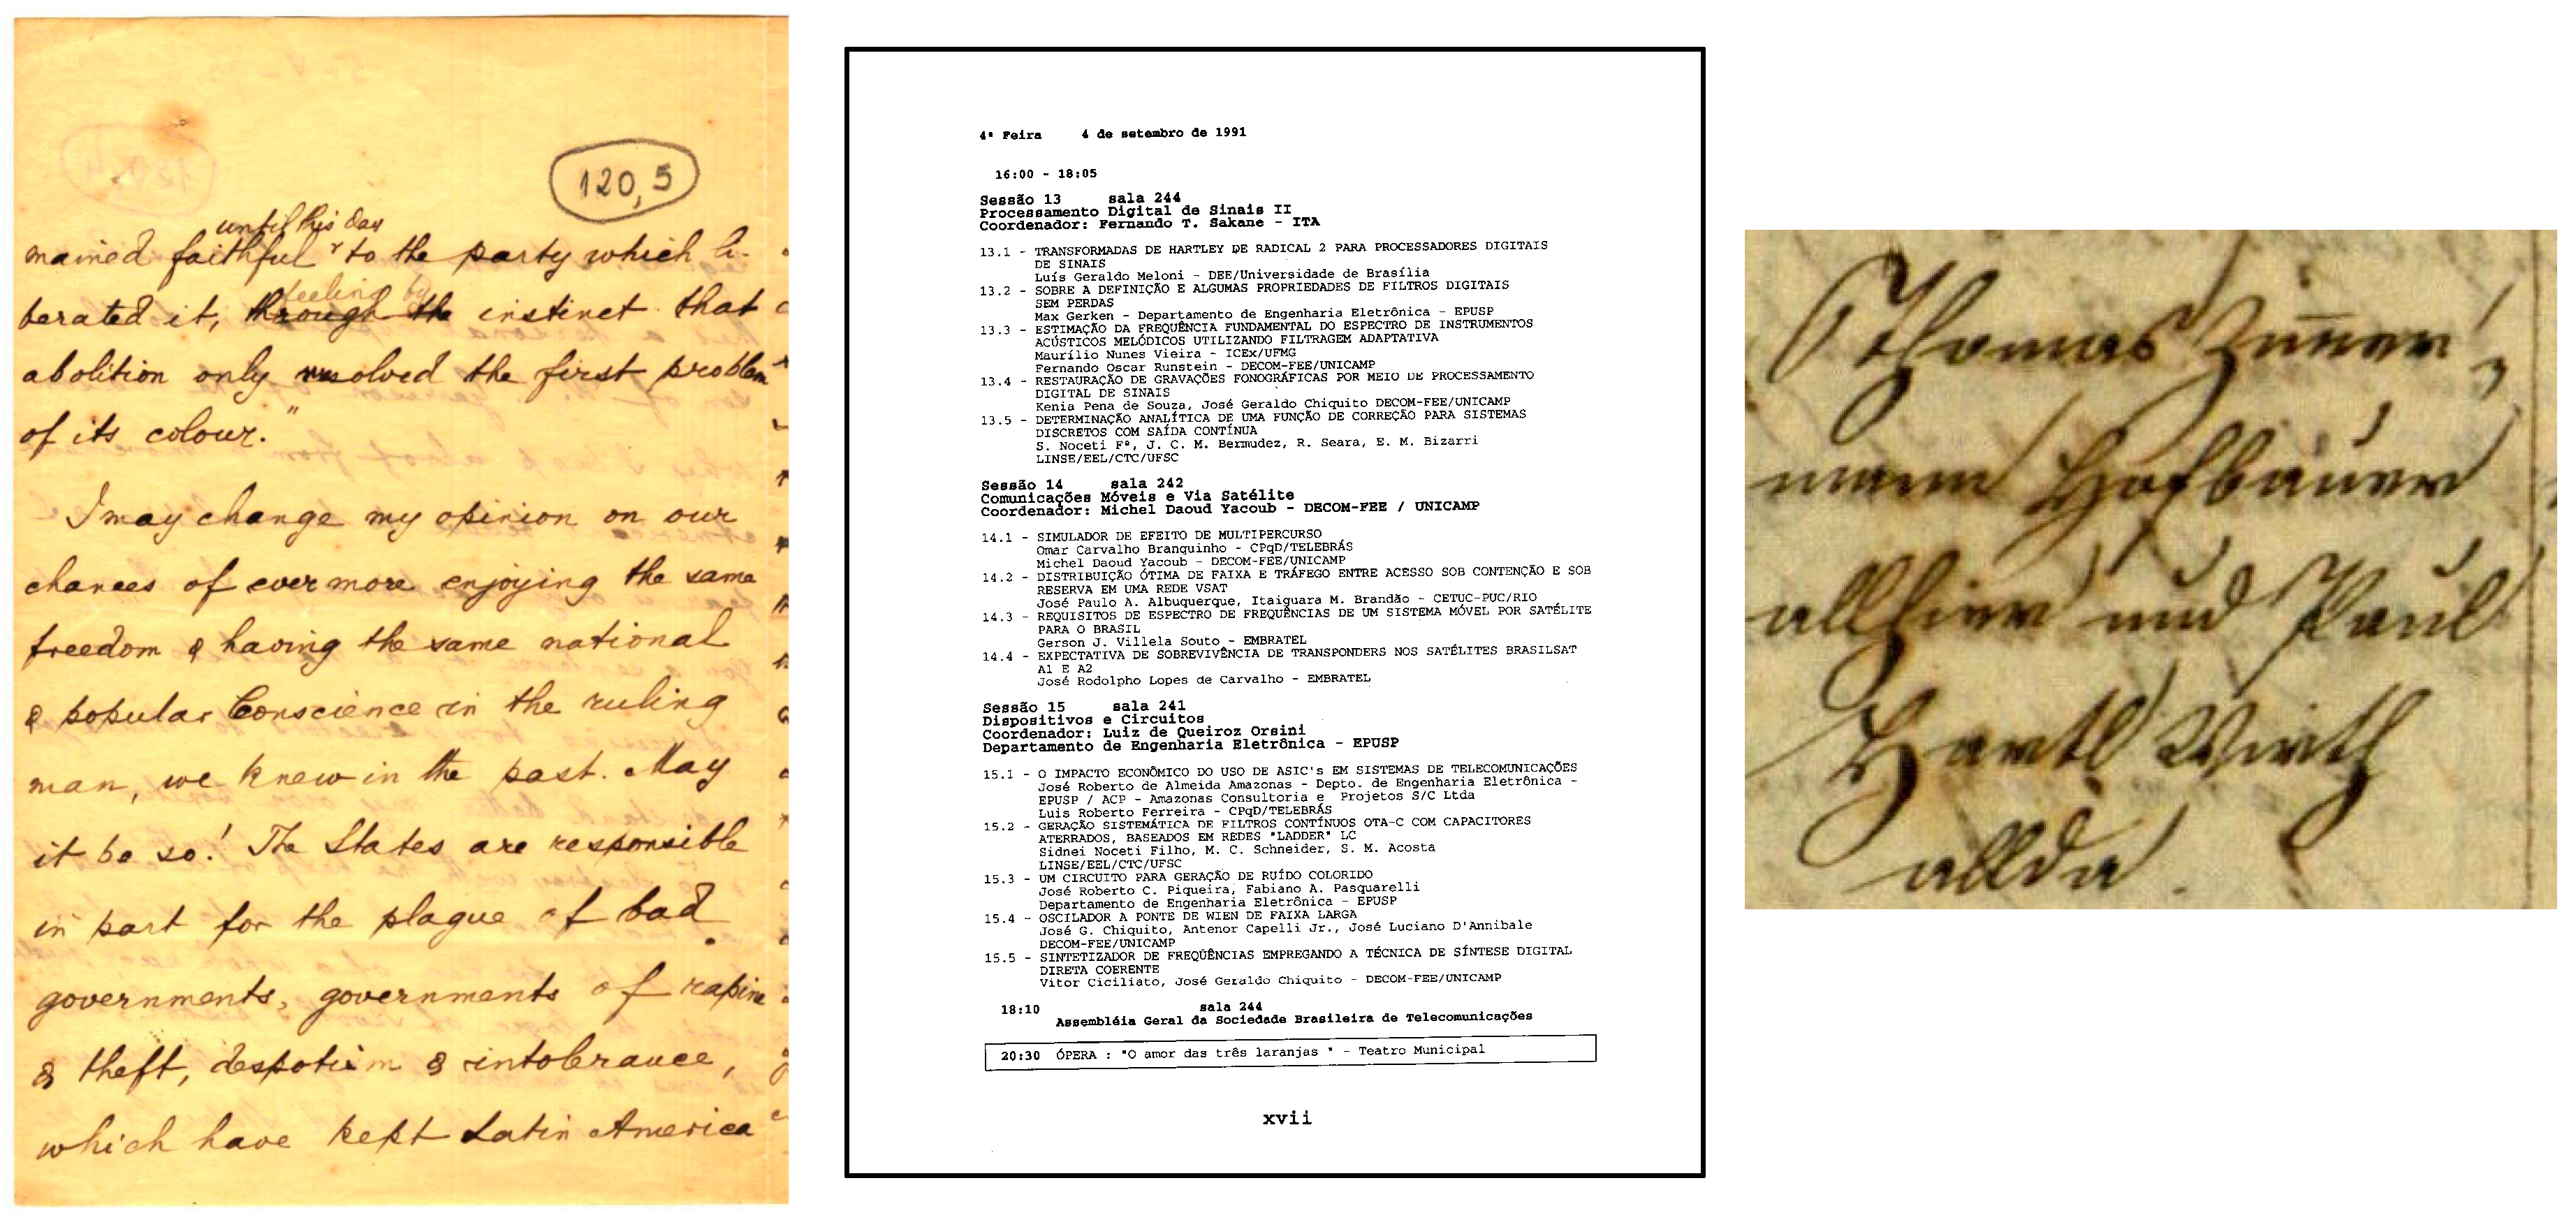 120,5
until this day
mained faithful to the party which li-
feeling by
berated it, through the instinct that
abolition only resolved the first problem
of its colour."
I may change my opinion on our
chances of ever more enjoying the same
freedom & having the same national
& popular Conscience in the ruling
man, we knew in the past. May
it be so! The States are responsible
in part for the plague of bad
governments, governments of rapine
& theft, despotism & intolerance,
which have kept Latin America
4ª Feira 4 de setembro de 1991
16:00 - 18:05
Sessão 13 sala 244
Processamento Digital de Sinais II
Coordenador: Fernando T. Sakane - ITA
13.1 - TRANSFORMADAS DE HARTLEY DE RADICAL 2 PARA PROCESSADORES DIGITAIS
DE SINAIS
Luís Geraldo Meloni - DEE/Universidade de Brasília
13.2 - SOBRE A DEFINIÇÃO E ALGUMAS PROPRIEDADES DE FILTROS DIGITAIS
SEM PERDAS
Max Gerken - Departamento de Engenharia Eletrônica - EPUSP
13.3 - ESTIMAÇÃO DA FREQUÊNCIA FUNDAMENTAL DO ESPECTRO DE INSTRUMENTOS
ACÚSTICOS MELÓDICOS UTILIZANDO FILTRAGEM ADAPTATIVA
Maurílio Nunes Vieira - ICEx/UFMG
Fernando Oscar Runstein - DECOM-FEE/UNICAMP
13.4 - RESTAURAÇÃO DE GRAVAÇÕES FONOGRÁFICAS POR MEIO DE PROCESSAMENTO
DIGITAL DE SINAIS
Kenia Pena de Souza, José Geraldo Chiquito DECOM-FEE/UNICAMP
13.5 - DETERMINAÇÃO ANALÍTICA DE UMA FUNÇÃO DE CORREÇÃO PARA SISTEMAS
DISCRETOS COM SAÍDA CONTÍNUA
S. Noceti Fº, J. C. M. Bermudez, R. Seara, E. M. Bizarri
LINSE/EEL/CTC/UFSC
Sessão 14 sala 242
Comunicações Móveis e Via Satélite
Coordenador: Michel Daoud Yacoub - DECOM-FEE / UNICAMP
14.1 - SIMULADOR DE EFEITO DE MULTIPERCURSO
Omar Carvalho Branquinho - CPqD/TELEBRÁS
Michel Daoud Yacoub - DECOM-FEE/UNICAMP
14.2 - DISTRIBUIÇÃO ÓTIMA DE FAIXA E TRÁFEGO ENTRE ACESSO SOB CONTENÇÃO E SOB
RESERVA EM UMA REDE VSAT
José Paulo A. Albuquerque, Itaiguara M. Brandão - CETUC-PUC/RIO
14.3 - REQUISITOS DE ESPECTRO DE FREQUÊNCIAS DE UM SISTEMA MÓVEL POR SATÉLITE
PARA O BRASIL
Gerson J. Villela Souto - EMBRATEL
14.4 - EXPECTATIVA DE SOBREVIVÊNCIA DE TRANSPONDERS NOS SATÉLITES BRASILSAT
A1 E A2
José Rodolpho Lopes de Carvalho - EMBRATEL
Sessão 15 sala 241
Dispositivos e Circuitos
Coordenador: Luiz de Queiroz Orsini
Departamento de Engenharia Eletrônica - EPUSP
15.1 - O IMPACTO ECONÔMICO DO USO DE ASIC's EM SISTEMAS DE TELECOMUNICAÇÕES
José Roberto de Almeida Amazonas - Depto. de Engenharia Eletrônica -
EPUSP / ACP - Amazonas Consultoria e Projetos S/C Ltda
Luis Roberto Ferreira - CPqD/TELEBRÁS
15.2 - GERAÇÃO SISTEMÁTICA DE FILTROS CONTÍNUOS OTA-C COM CAPACITORES
ATERRADOS, BASEADOS EM REDES "LADDER" LC
Sidnei Noceti Filho, M. C. Schneider, S. M. Acosta
LINSE/EEL/CTC/UFSC
15.3 - UM CIRCUITO PARA GERAÇÃO DE RUÍDO COLORIDO
José Roberto C. Piqueira, Fabiano A. Pasquarelli
Departamento de Engenharia Eletrônica - EPUSP
15.4 - OSCILADOR A PONTE DE WIEN DE FAIXA LARGA
José G. Chiquito, Antenor Capelli Jr., José Luciano D'Annibale
DECOM-FEE/UNICAMP
15.5 - SINTETIZADOR DE FREQÜÊNCIAS EMPREGANDO A TÉCNICA DE SÍNTESE DIGITAL
DIRETA COERENTE
Vitor Ciciliato, José Geraldo Chiquito - DECOM-FEE/UNICAMP
18:10 sala 244
Assembléia Geral da Sociedade Brasileira de Telecomunicações
20:30 ÓPERA : "O amor das três laranjas " - Teatro Municipal
xvii
Thomas Zimer
mann Hofbauer
allhier und Paul
Hartl Wirth
allda.